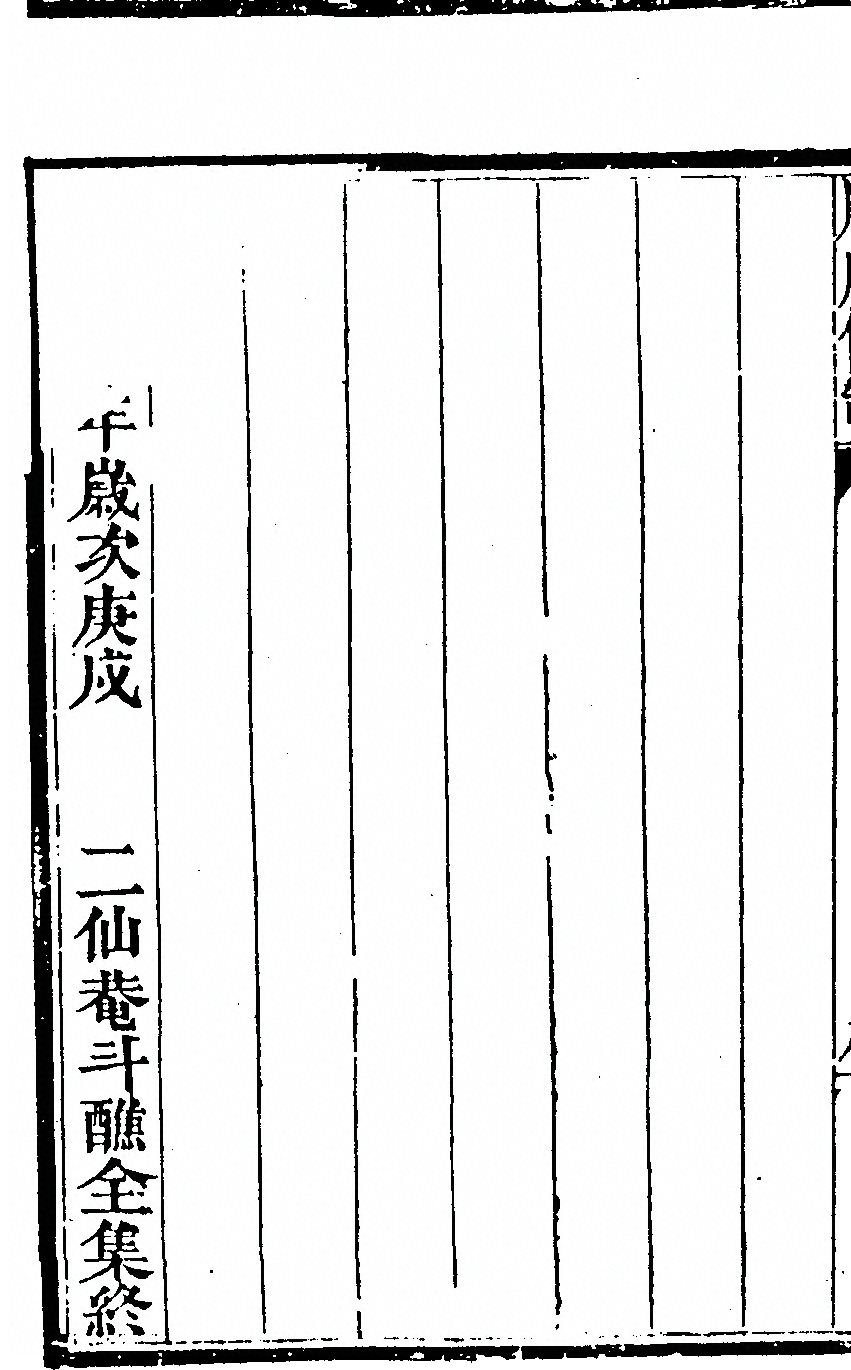 年歲次庚戌　二仙菴斗醮全集終